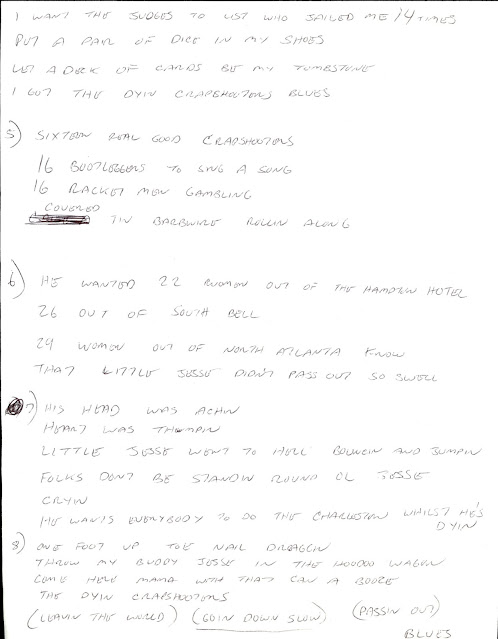 I WANT THE JUDGES TO LIST WHO JAILED ME 14 TIMES
PUT A PAIR OF DICE IN MY SHOES
LET A DECK OF CARDS BE MY TOMBSTONE
I GOT THE DYIN CRAPSHOOTERS BLUES
5) SIXTEEN REAL GOOD CRAPSHOOTERS
16 BOOTLEGGERS TO SING A SONG
16 RACKET MEN GAMBLING
COVERED
TIN BARBWIRE ROLLIN ALONG
6) HE WANTED 22 WOMEN OUT OF THE HAMPTON HOTEL
26 OUT OF SOUTH BELL
24 WOMEN OUT OF NORTH ATLANTA KNOW
THAT LITTLE JESSE DIDN'T PASS OUT SO SWELL
7) HIS HEAD WAS ACHIN
HEART WAS THUMPIN
LITTLE JESSE WENT TO HELL BOUNCIN AND JUMPIN
FOLKS DON'T BE STANDIN ROUND OL JESSE
CRYIN
HE WANTS EVERYBODY TO DO THE CHARLESTON WHILST HE'S
DYIN
8) ONE FOOT UP TOE NAIL DRAGGIN
THROW MY BUDDY JESSE IN THE HOODOO WAGON
COME HERE MAMA WITH THAT CAN A BOOZE
THE DYIN CRAPSHOOTERS
(LEAVIN THE WORLD) (GOIN DOWN SLOW) (PASSIN OUT)
BLUES